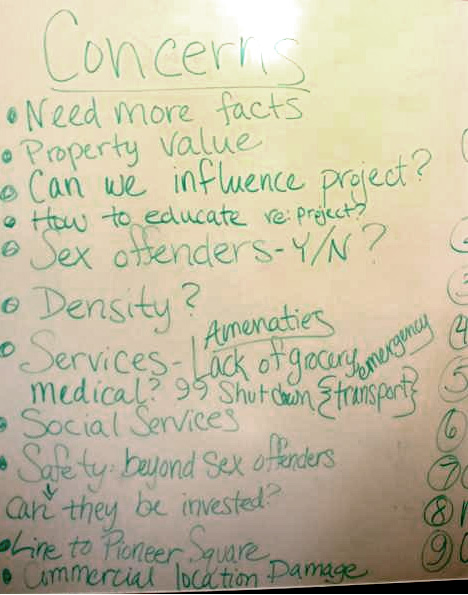 Concerns
• Need more facts
• Property value
• Can we influence project?
• How to educate re: project?
• Sex offenders - Y/N?
• Density?
Amenaties
• Services - Lack of grocery, emergency
medical? 99 Shutdown {transport}
• Social Services
• Safety: beyond sex offenders
can they be invested?
• Line to Pioneer Square
• Commercial location Damage
3
4
5
6
7
8
9